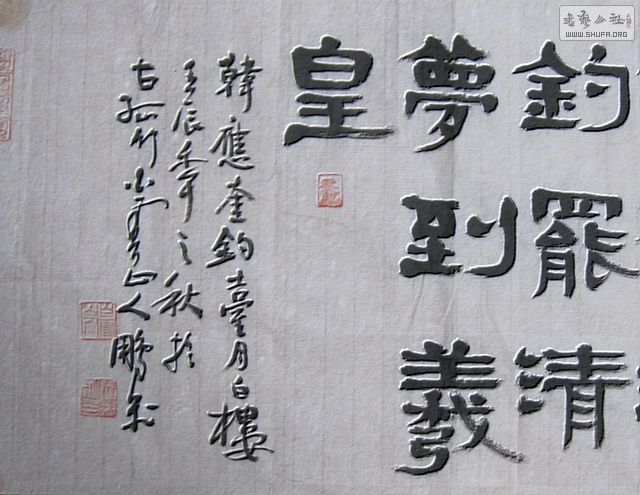 釣罷清
夢到羲
皇
韓應奎釣臺月白樓
壬辰年之秋於
古孤竹小雲山人鵬程
書藝公社
WWW.SHUFA.ORG